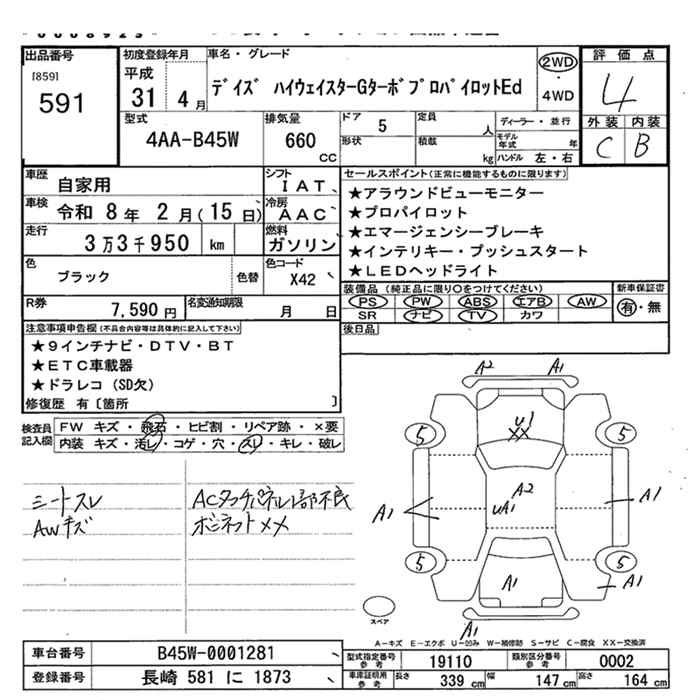 出品番号
[859]
591
初度登録年月
平成
31 4月
車名・グレード
デイズ ハイウェイスターGターボプロパイロットEd
2WD
4WD
評価点
4
外装 内装
C B
型式
4AA-B45W
排気量
660
cc
ドア 5
定員
人
ディーラー・並行
形状
積載
kg
モデル年式
年
ハンドル 左・右
車歴
自家用
シフト
IAT
車検
令和 8年 2月(15日)
冷房
AAC
走行
3万3千950 km
燃料
ガソリン
色
ブラック
色替
色コード
X42
R券
7,590円
名変通知期限
月 日
セールスポイント(正常に機能するものに限ります)
★アラウンドビューモニター
★プロパイロット
★エマージェンシーブレーキ
★インテリキー・プッシュスタート
★LEDヘッドライト
装備品(純正品に限り○をつけてください)
新車保証書
PS PW ABS エアB AW
SR ナビ TV カワ
有・無
後日品
注意事項申告欄(不具合内容等は具体的に記入して下さい)
★9インチナビ・DTV・BT
★ETC車載器
★ドラレコ(SD欠)
修復歴 有〔箇所 〕
検査員記入欄
FW キズ・飛石・ヒビ割・リペア跡・×要
内装 キズ・汚レ・コゲ・穴・スレ・キレ・破レ
シートスレ
AWキズ
ACタッチパネル1部不良
ボンネットXX
A2 A1
U1
XX
5 5
A2
UA1
A1 A1
5 5
A1 A1
A1
スペア
A-キズ E-エクボ U-凹み W-補修跡 S-サビ C-腐食 XX-交換済
車台番号
B45W-0001281
登録番号
長崎 581 に 1873
型式指定番号 参考
19110
類別区分番号 参考
0002
車庫証明用 参考
長さ 339 cm
幅 147 cm
高さ 164 cm